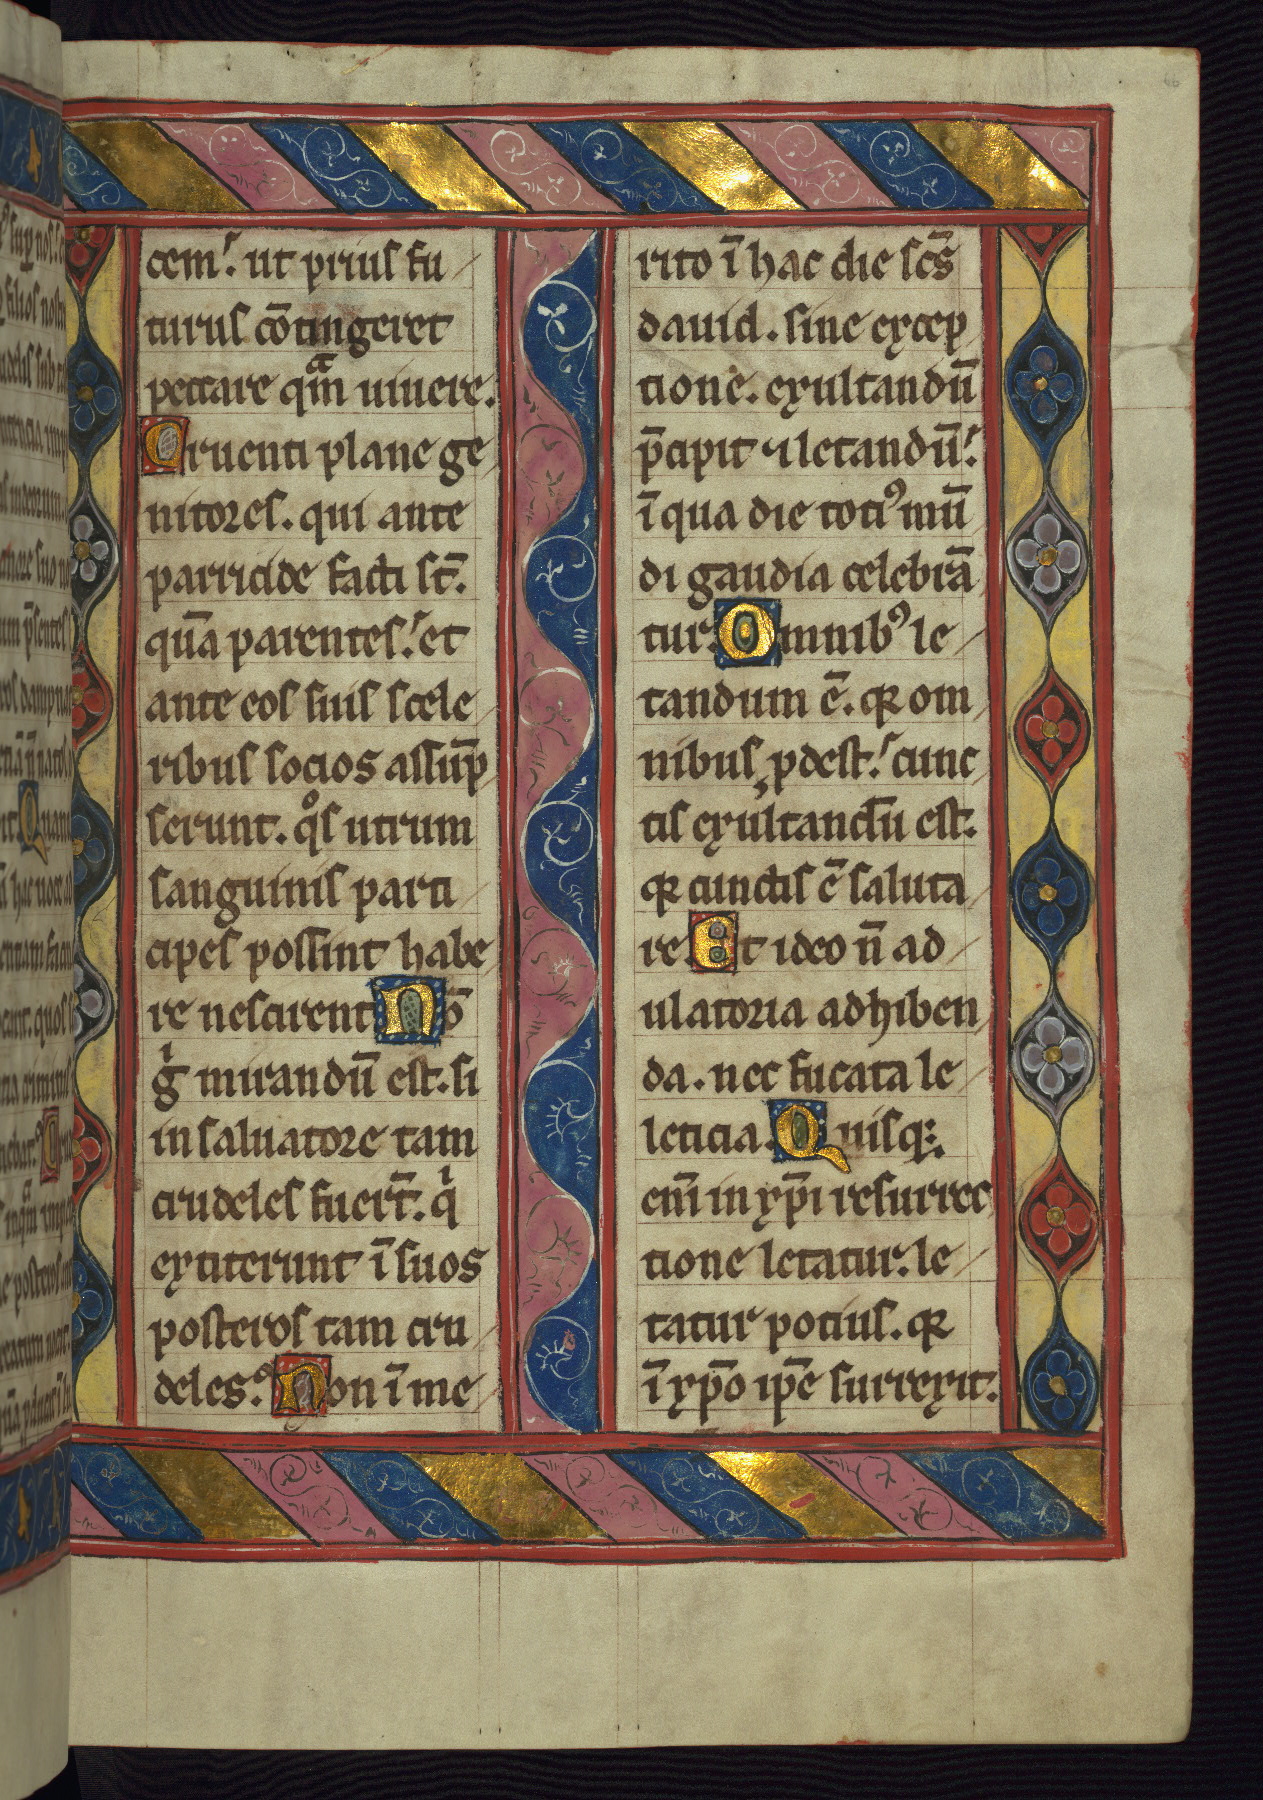 cem. ut prius fu
turus cōtingeret
peccare qͣm uiuere.
Cruenti plane ge
nitores. qui ante
parricide facti st̄.
quā parentes. et
ante eos suis scele
ribus socios assūp
serunt. qͦs utrum
sanguinis parti
cipes possint habe
re nescirent Nō
gͥ mirandū est. si
in saluatore tam
crudeles fuert̄. qͥ
extiterunt ī suos
posteros tam cru
deles. Non ī me
rito ī hac die sc̄s
dauid. sine excep
tione. exultandū
p̄cipit ⁊ letandū.
ī qua die totiꝰ mū
di gaudia celebrā
tur. Omnibꝰ le
tandum ē. qꝛ om
nibus ꝓdest. cunc
tis exultandū est.
qꝛ cunctis ē saluta
re Et ideo n̄ ad
ulatoria adhiben
da. nec fucata le
leticia. Quisqꝫ
eni̅ in xp̄i resurrec
tione letatur. le
tatur potius. qꝛ
ī xp̄o ip̄e surrexit.